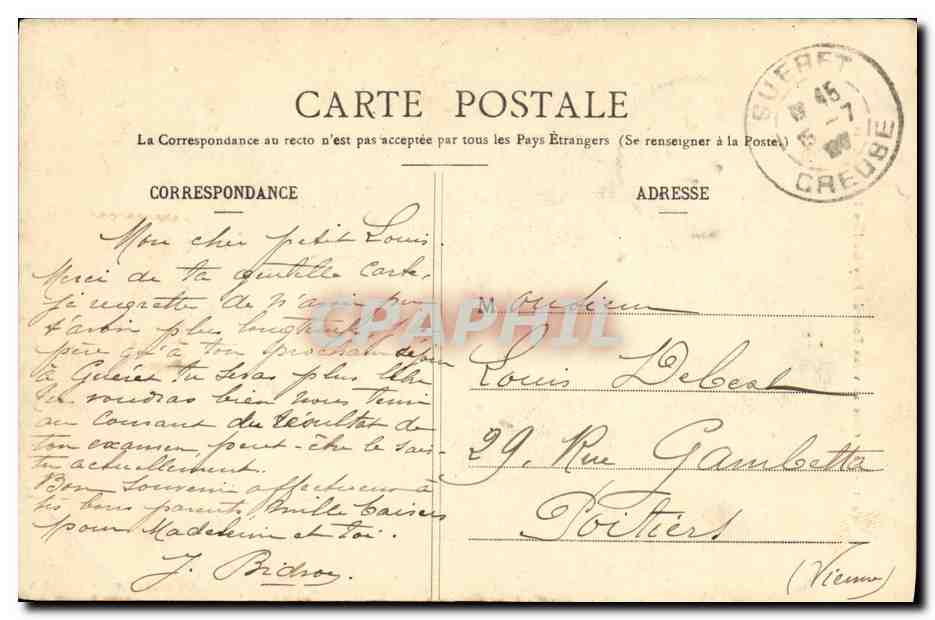 CARTE POSTALE
La Correspondance au recto n'est pas acceptée par tous les Pays Étrangers (Se renseigner à la Poste.)
CORRESPONDANCE
Mon cher petit Louis.
Merci de ta gentille carte,
je regrette de n'avoir pu
t'avoir plus longtemps, j'es-
père qu'à ton prochain séjour
à Guéret tu seras plus libre
tu voudras bien nous tenir
au courant du résultat de
ton examen, peut-être le sais-
tu actuellement.
Bon souvenir affectueux à
tes bons parents, mille baisers
pour Madeleine et toi.
J.
ADRESSE
Monsieur
Louis
29, Rue Gambetta
Poitiers
(Vienne)
GUERET
45
15 -7
CREUSE
CPAPHIL